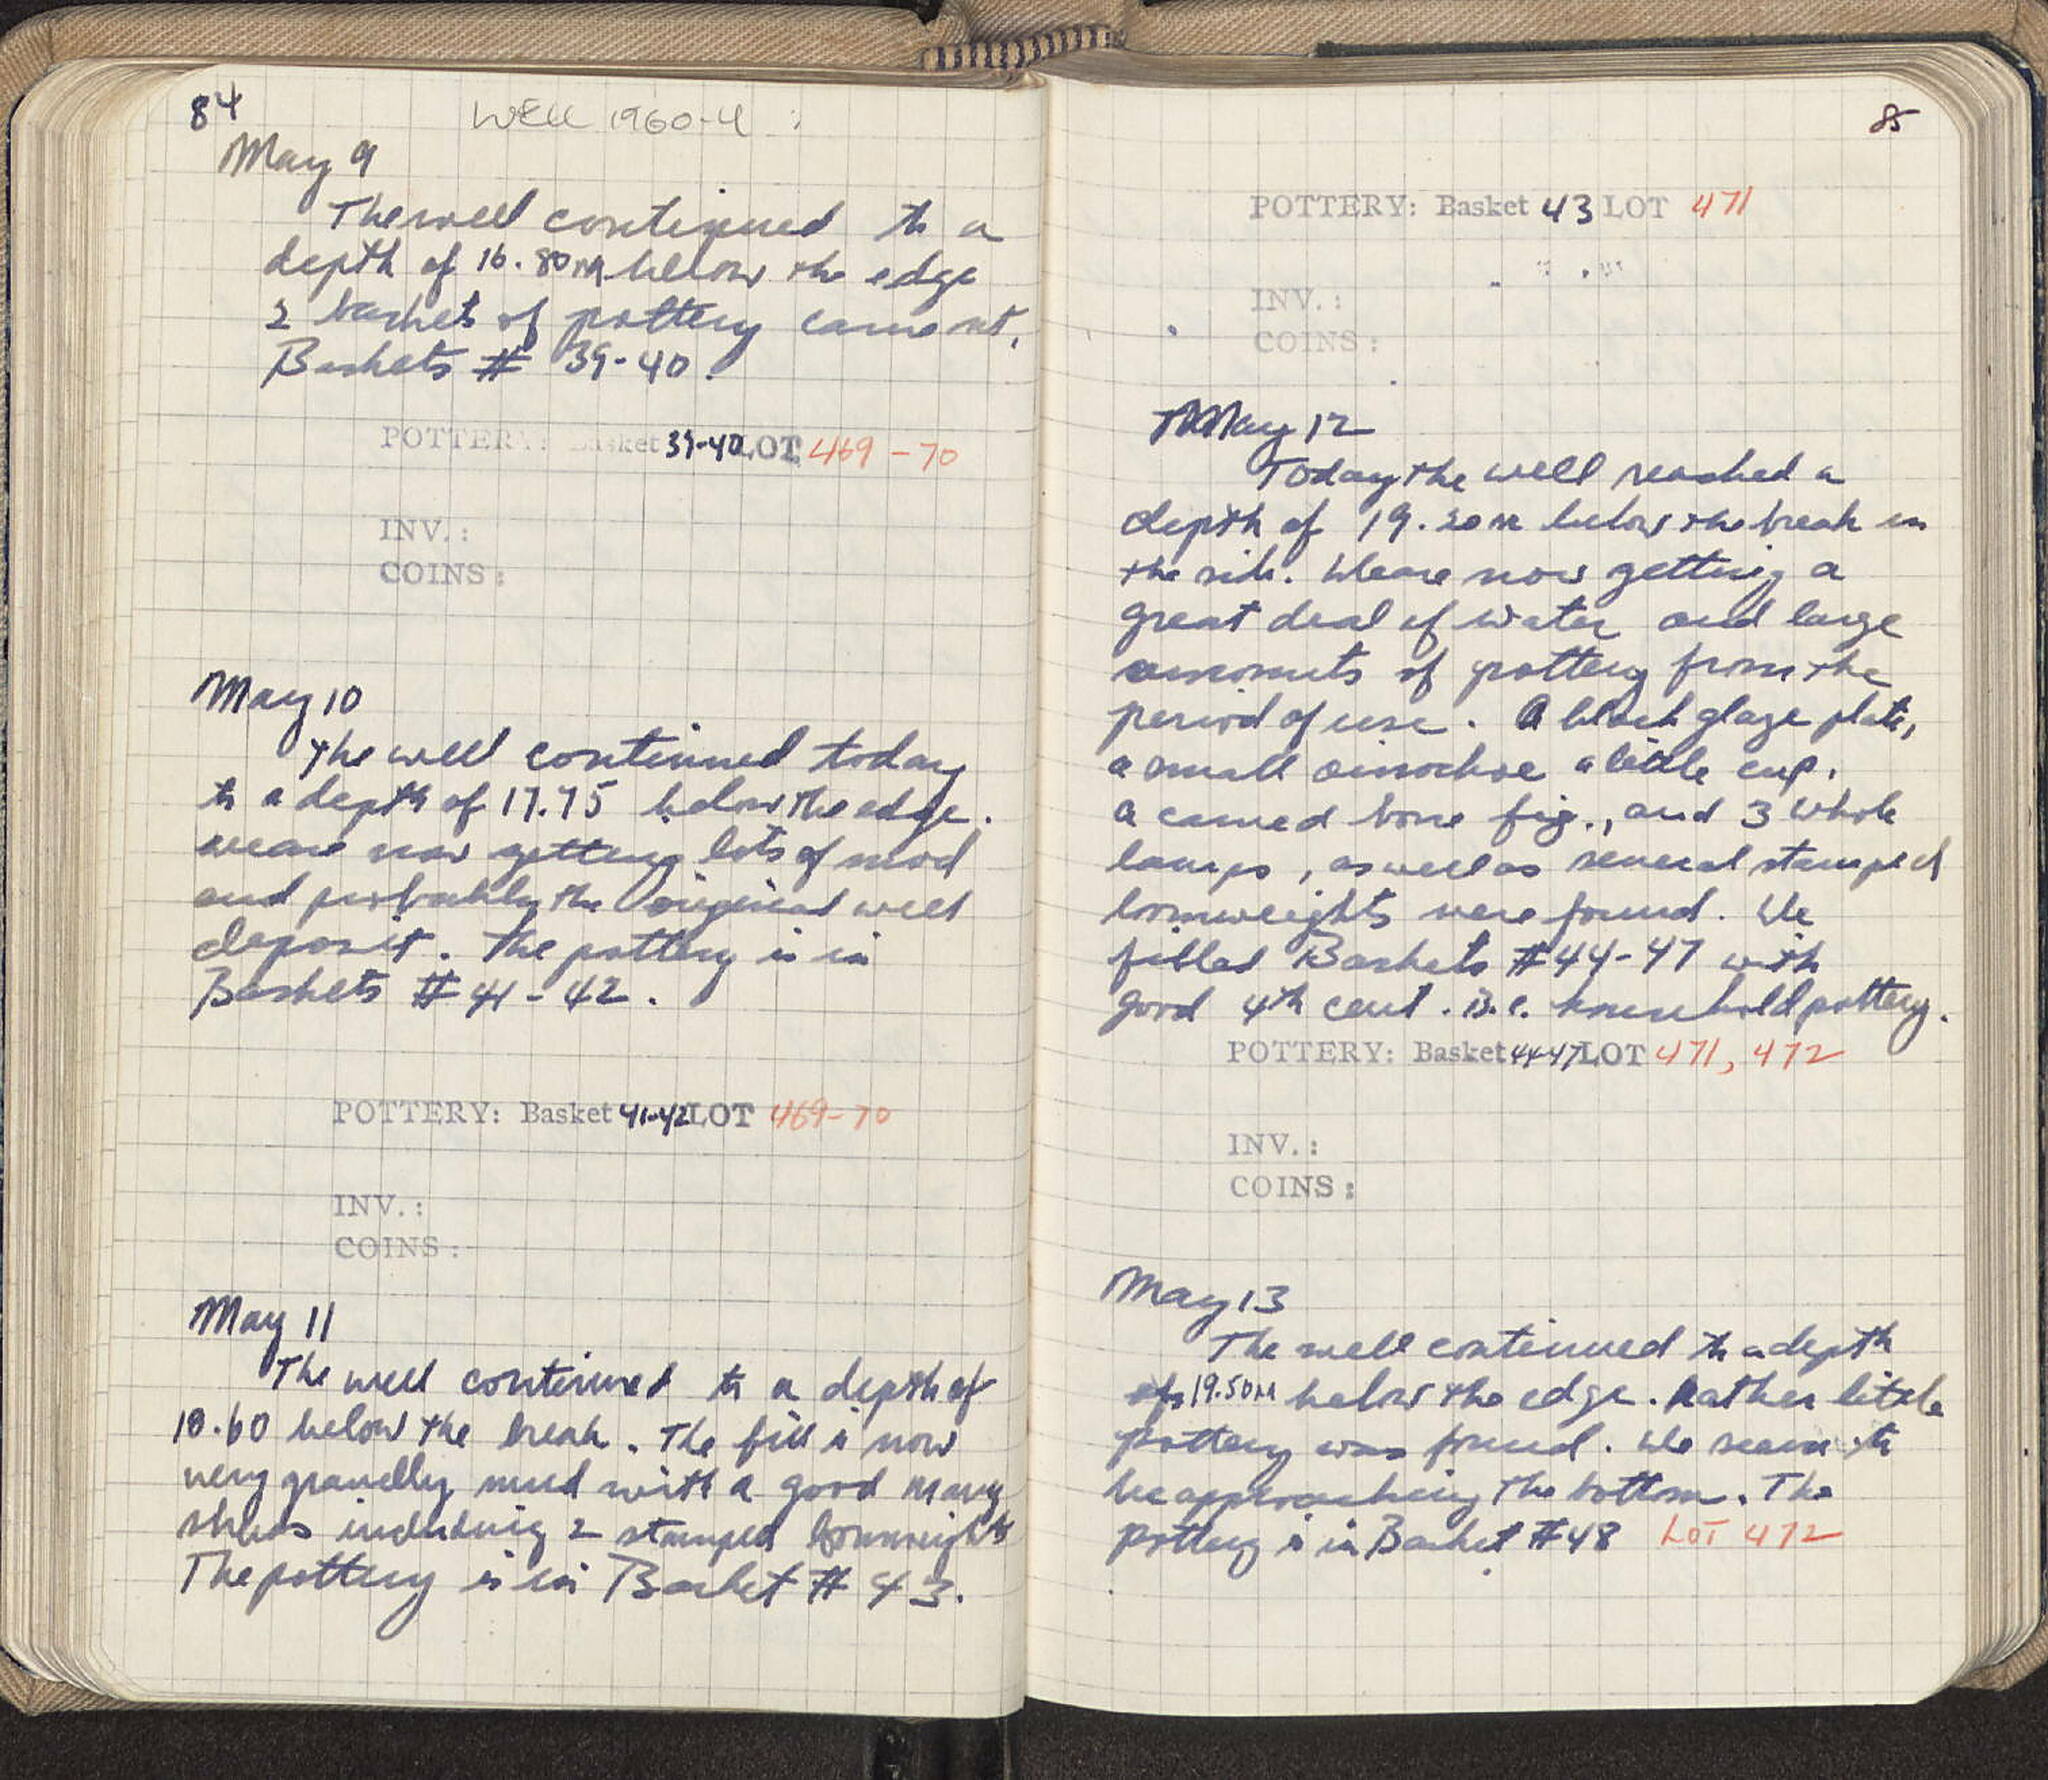 84
WELL 1960-4
May 9
The well continued to a
depth of 16.80 m below the edge
2 baskets of pottery came out.
Baskets # 39-40.
POTTERY: Basket 39-40 LOT 469-70
INV.:
COINS:
May 10
The well continued today
to a depth of 17.75 below the edge.
we are now getting lots of mud
and probably the original well
deposit. The pottery is in
Baskets # 41-42.
POTTERY: Basket 41-42 LOT 469-70
INV.:
COINS:
May 11
The well continued to a depth of
18.60 below the break. The fill is now
very gravelly mud with a good many
sherds including 2 stamped loomweights
The pottery is in Basket # 43.
85
POTTERY: Basket 43 LOT 471
INV.:
COINS:
May 12
Today the well reached a
depth of 19.20 m below the break in
the side. We are now getting a
great deal of water and large
amounts of pottery from the
period of use. A black glaze plate,
a small oinochoe a little cup.
a carved bone fig., and 3 whole
lamps, as well as several stamped
loomweights were found. We
filled Baskets #44-47 with
good 4th cent. B.C. household pottery.
POTTERY: Basket 44-47 LOT 471, 472
INV.:
COINS:
May 13
The well continued to a depth
of 19.50 M below the edge. Rather little
pottery was found. We seem to
be approaching the bottom. The
pottery is in Basket #48 LOT 472